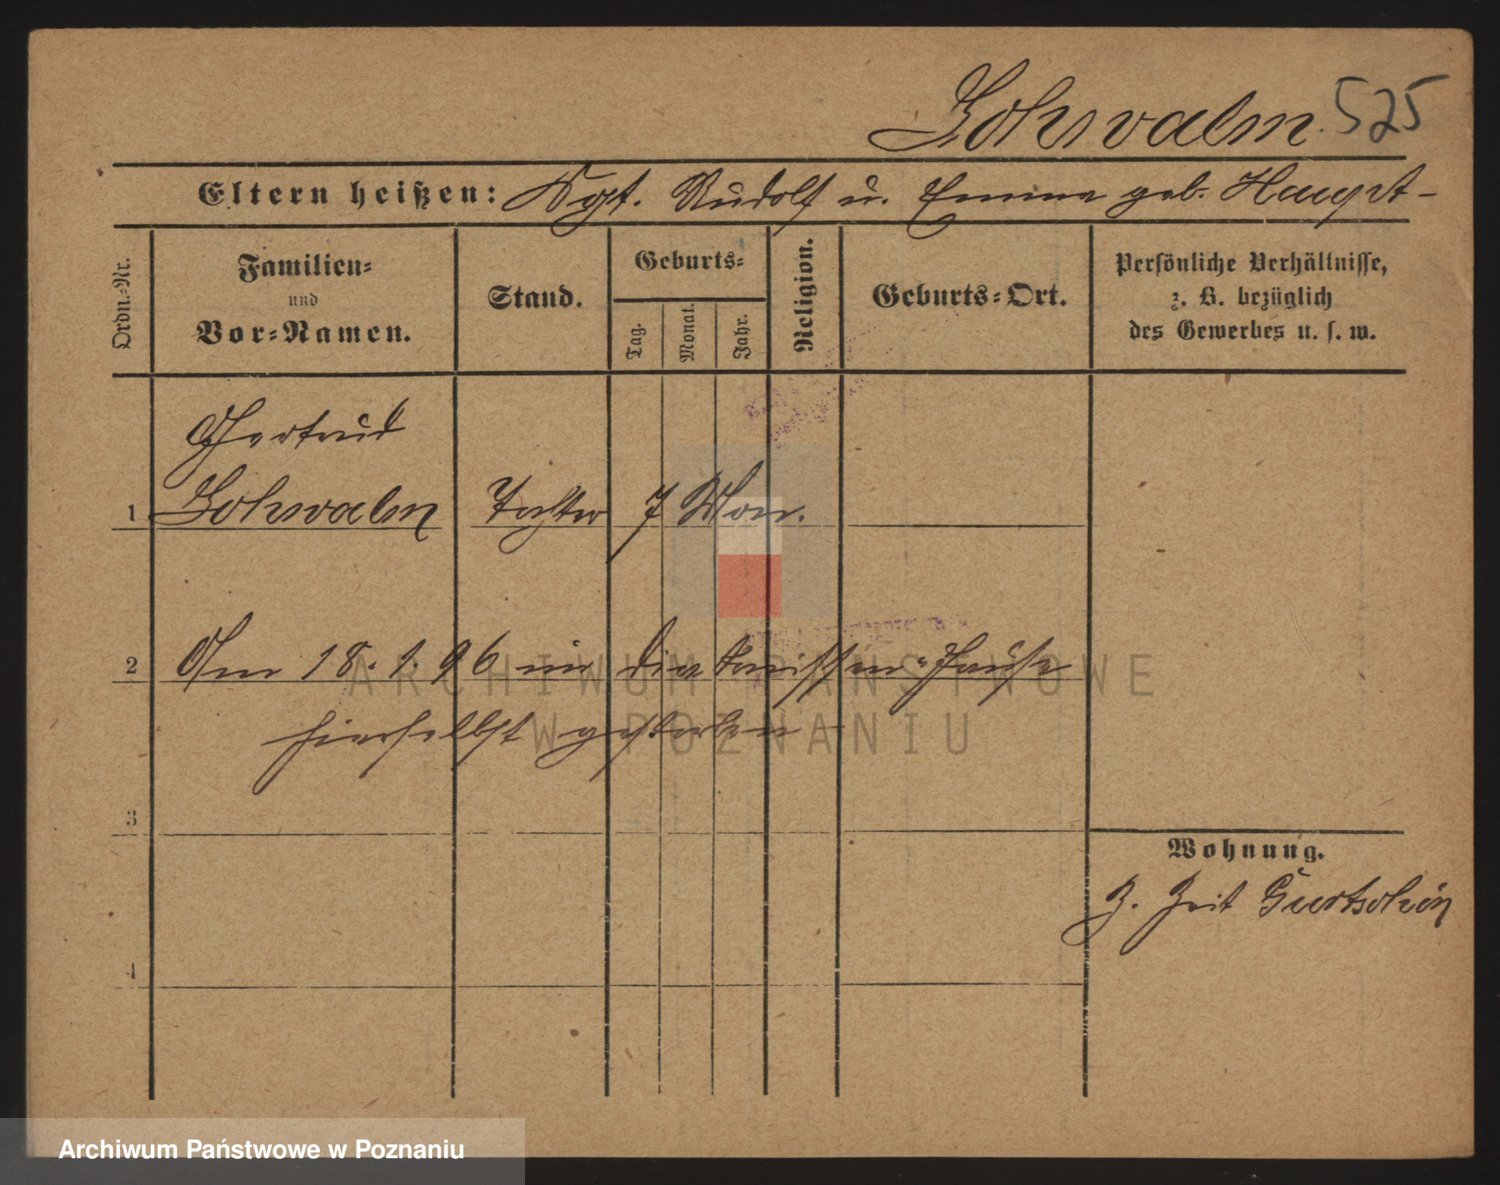 Lohrvalm. 525
Eltern heißen: Kgt. Rudolf u. Emma geb. Haupt-
Ordn.-Nr.
Familien-
und
Vor-Namen.
Stand.
Geburts-
Tag.
Monat.
Jahr.
Religion.
Geburts-Ort.
Persönliche Verhältnisse,
z. B. bezüglich
des Gewerbes u. s. w.
Gertrud
1 Tochter 7 Mon.
2 Am 18. 1. 96 im Diakonissen-Hause
hierselbst gestorben
3
Wohnung.
z. Zeit Gurtschin
4
ARCHIWUM PAŃSTWOWE
W POZNANIU
Archiwum Państwowe w Poznaniu